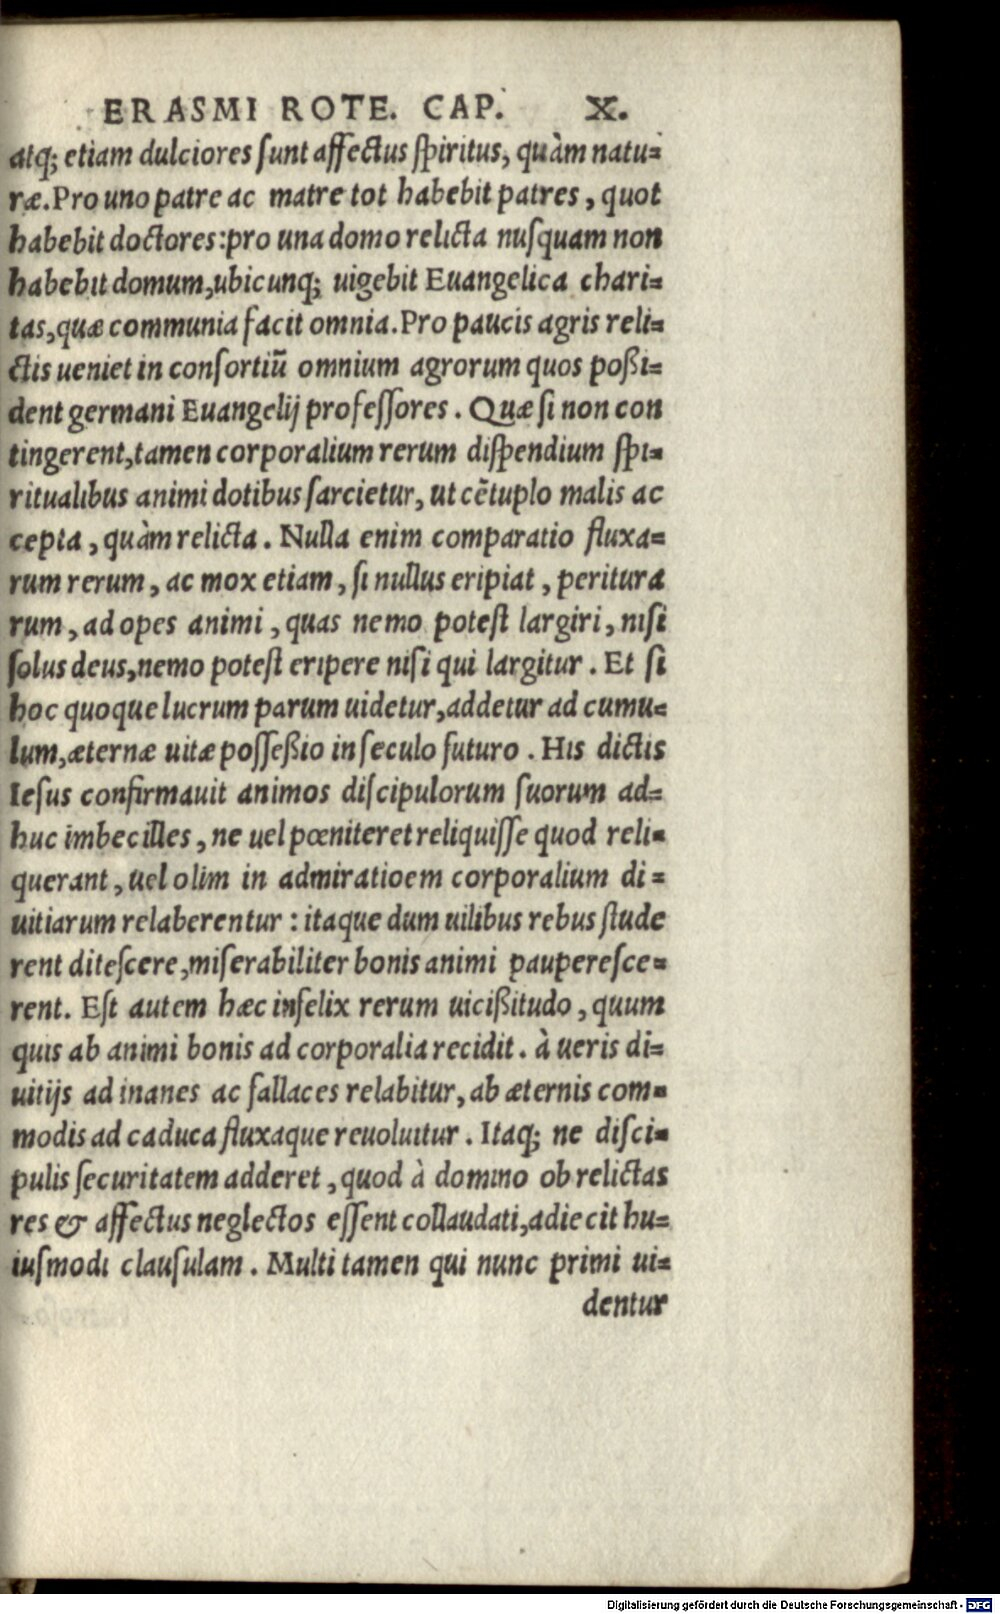 ERASMI ROTE. CAP. X.
atq; etiam dulciores sunt affectus spiritus, quàm natu=
ræ. Pro uno patre ac matre tot habebit patres, quot
habebit doctores: pro una domo relicta nusquam non
habebit domum, ubicunq; uigebit Euangelica chari=
tas, quæ communia facit omnia. Pro paucis agris reli=
ctis ueniet in consortiũ omnium agrorum quos poßi=
dent germani Euangelij professores. Quæ si non con
tingerent, tamen corporalium rerum dispendium spi=
ritualibus animi dotibus sarcietur, ut cẽtuplo malis ac
cepta, quàm relicta. Nulla enim comparatio fluxa=
rum rerum, ac mox etiam, si nullus eripiat, peritura
rum, ad opes animi, quas nemo potest largiri, nisi
solus deus, nemo potest eripere nisi qui largitur. Et si
hoc quoque lucrum parum uidetur, addetur ad cumu=
lum, æternæ uitæ posseßio in seculo futuro. His dictis
Iesus confirmauit animos discipulorum suorum ad=
huc imbecilles, ne uel pœniteret reliquisse quod reli=
querant, uel olim in admiratioem corporalium di=
uitiarum relaberentur: itaque dum uilibus rebus stude
rent ditescere, miserabiliter bonis animi pauperesce=
rent. Est autem hæc infelix rerum uicißitudo, quum
quis ab animi bonis ad corporalia recidit. à ueris di=
uitijs ad inanes ac fallaces relabitur, ab æternis com=
modis ad caduca fluxaque reuoluitur. Itaq; ne disci=
pulis securitatem adderet, quod à domino ob relictas
res & affectus neglectos essent collaudati, adiecit hu=
iusmodi clausulam. Multi tamen qui nunc primi ui=
dentur
Digitalisierung gefördert durch die Deutsche Forschungsgemeinschaft - DFG